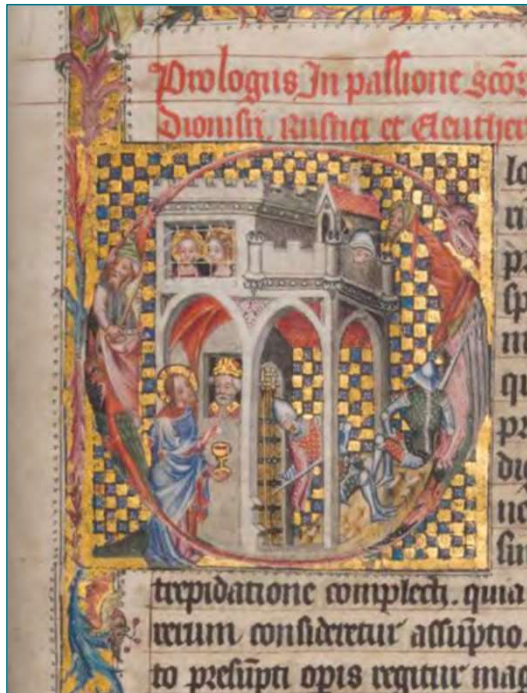 Prologus In passione scōs
Dionisii, Rustici et Eleuther
lo
pr
sp
m
qu
pr
du
su
trepidatione complecti. quia
rerum consideretur assūptio.
to presūpti opis regitur mag